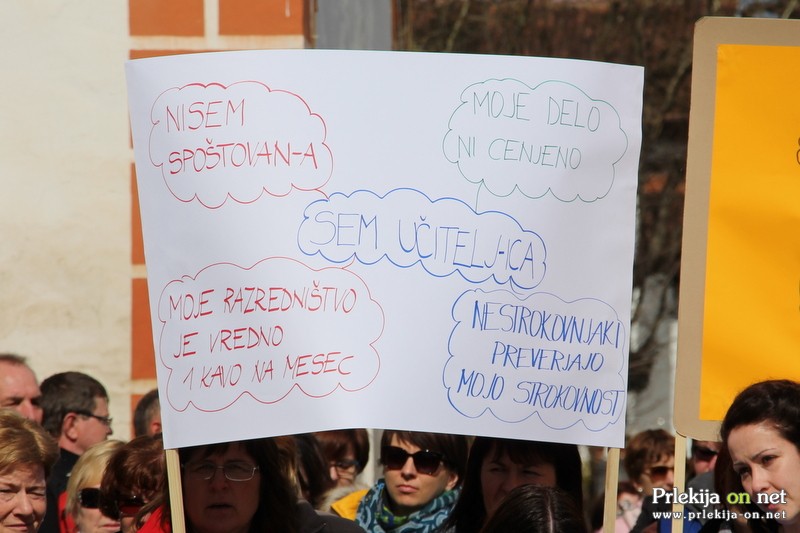 NISEM
SPOŠTOVAN-A
MOJE DELO
NI CENJENO
SEM UČITELJ-ICA
MOJE RAZREDNIŠTVO
JE VREDNO
1 KAVO NA MESEC
NESTROKOVNJAKI
PREVERJAJO
MOJO STROKOVNOST
Prlekija on net
www.prlekija-on.net